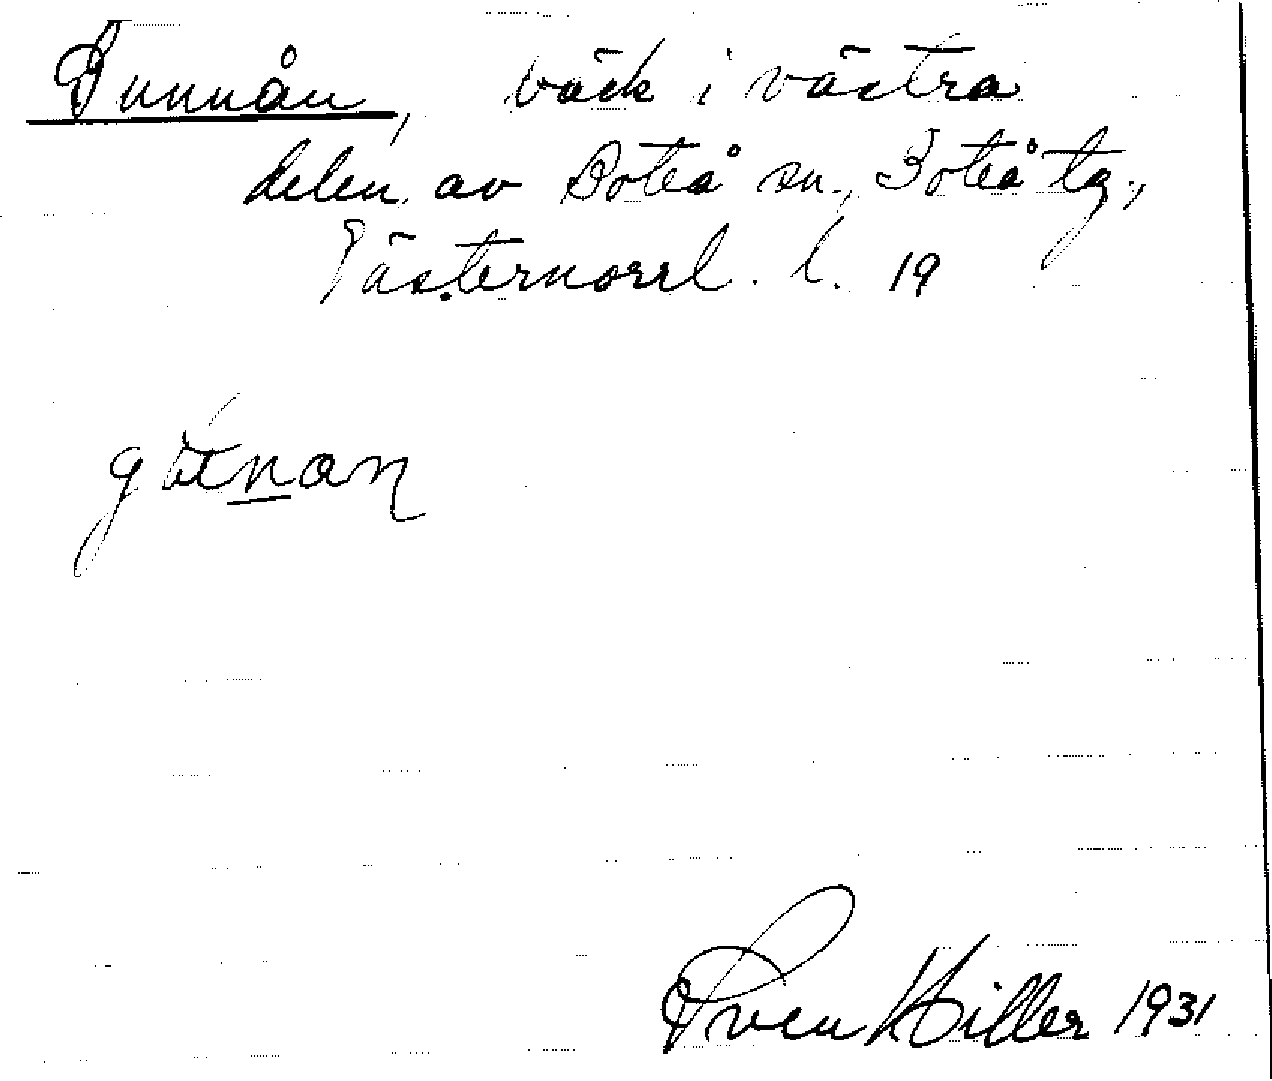 Gunnån, bäck i västra
delen av Boteå sn., Boteå tg.,
Västernorrl. l. 19
Sven Hiller 1931